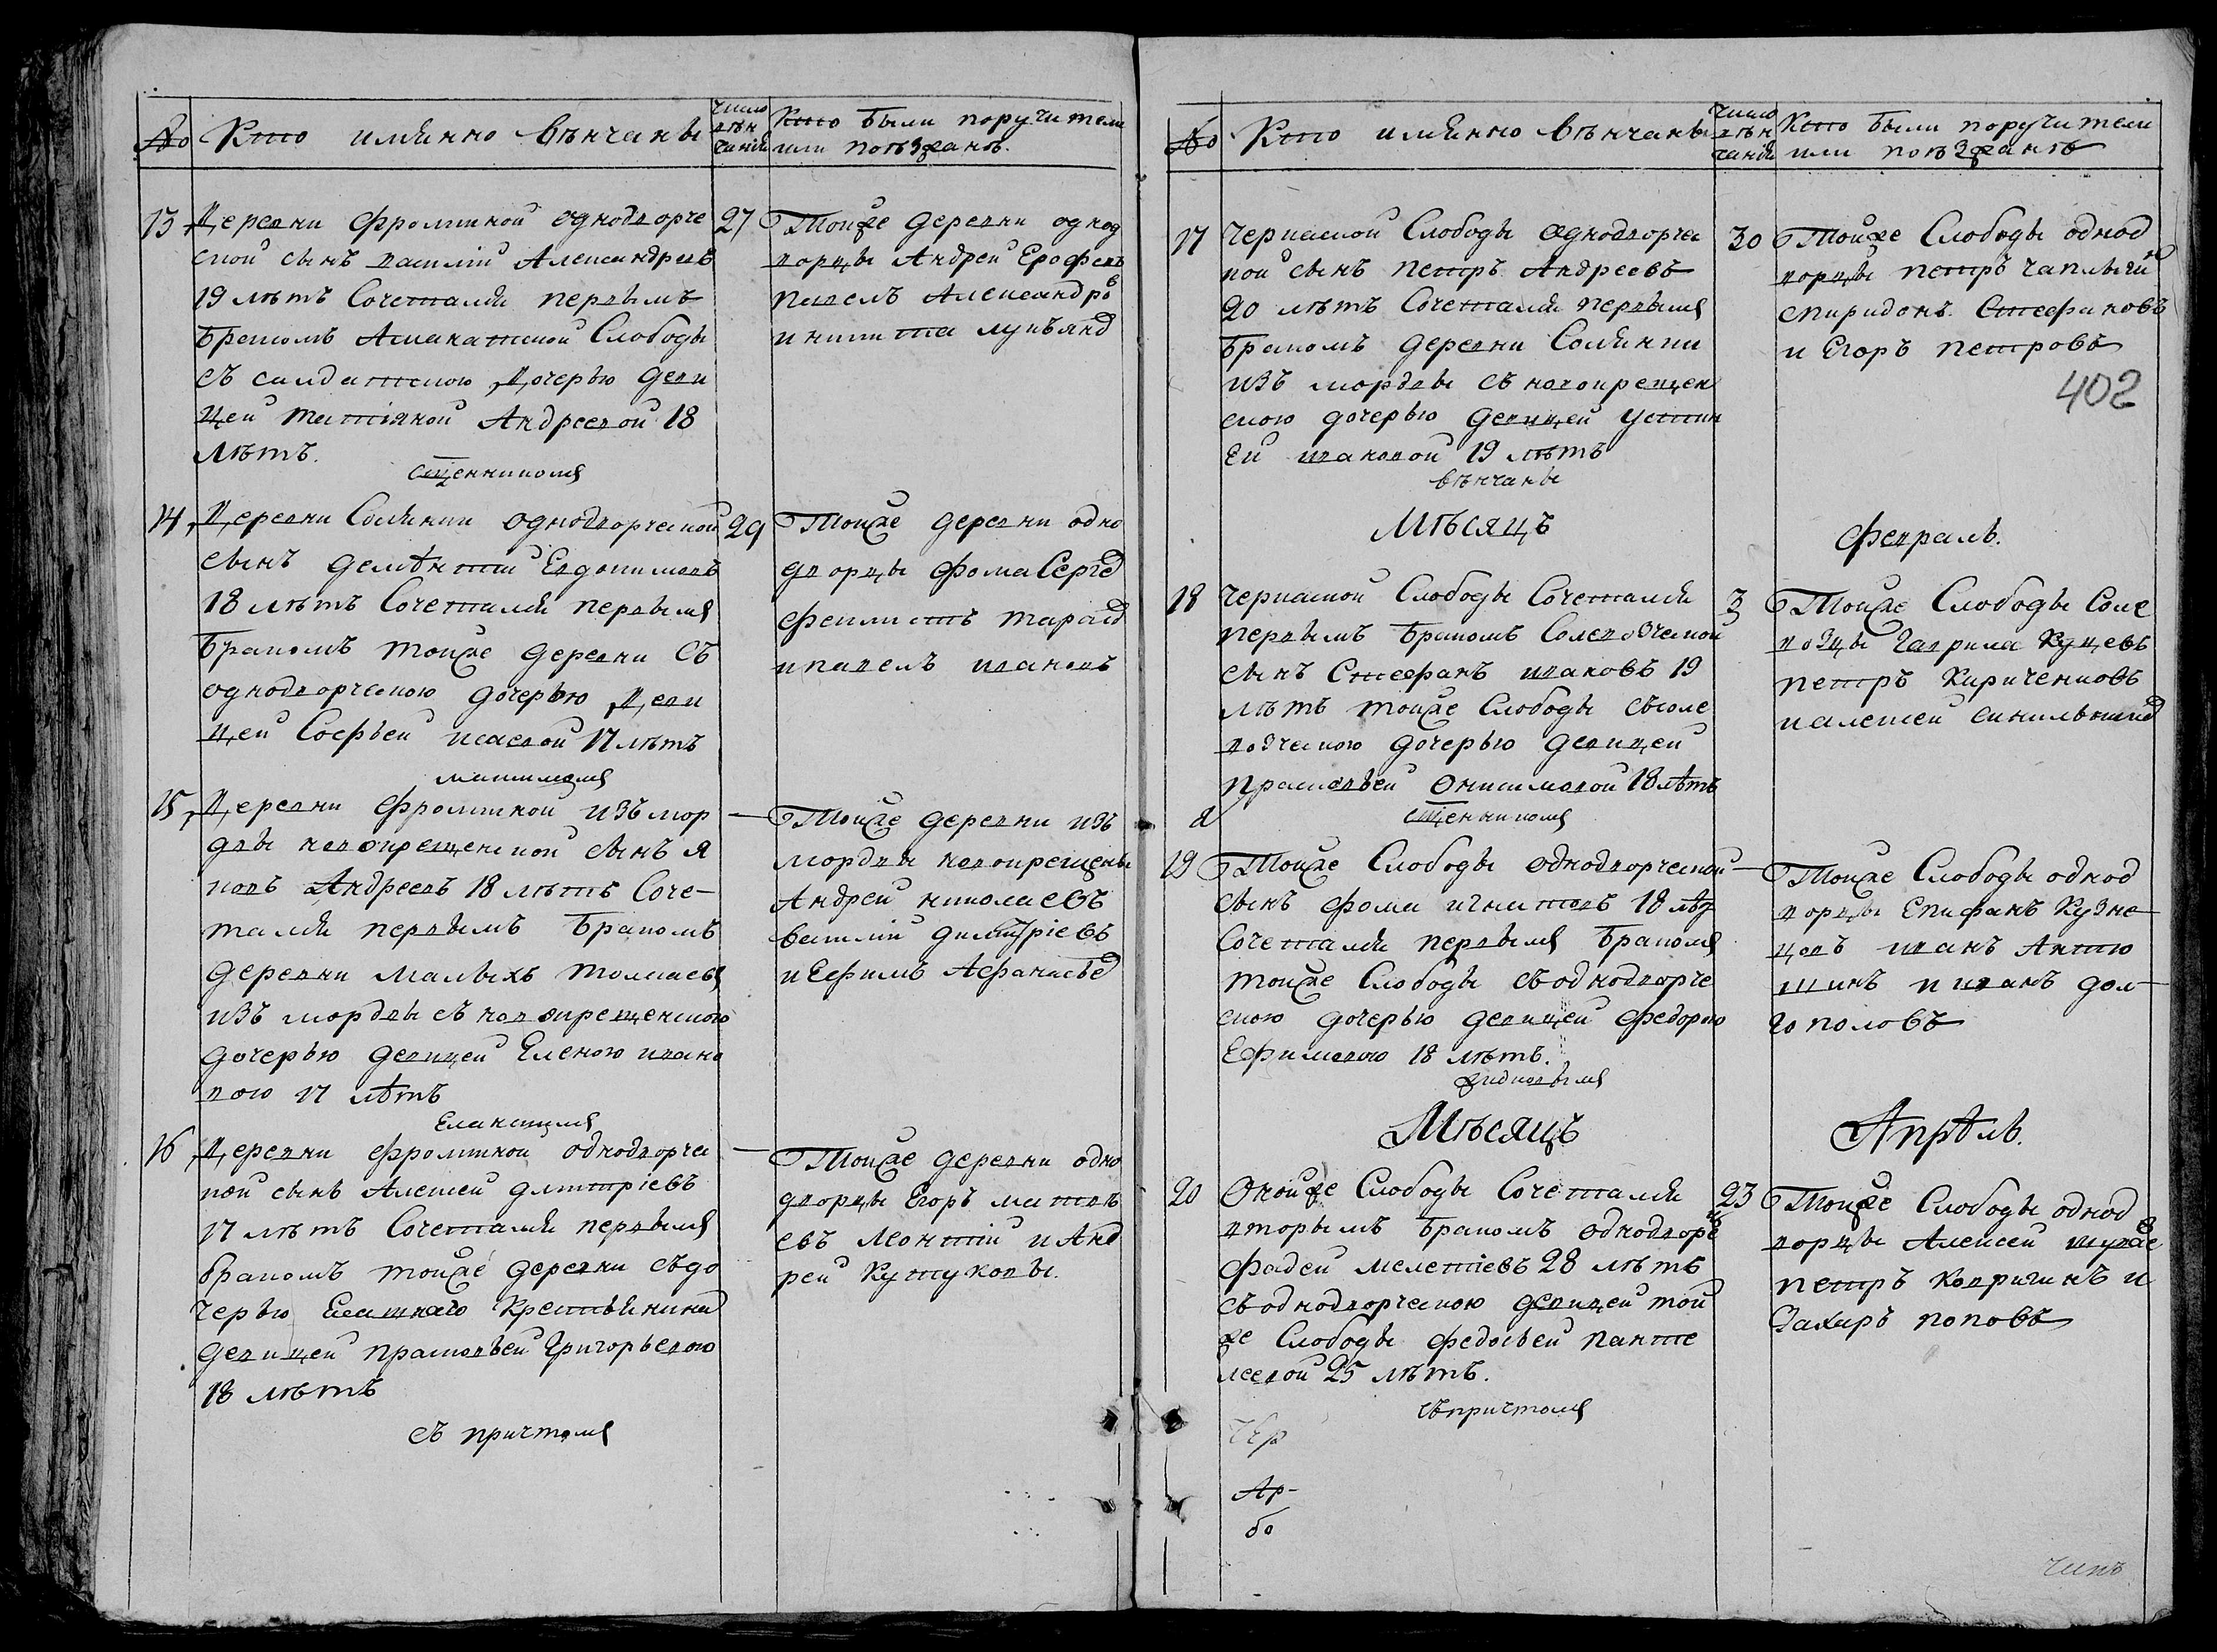 № Кто имянно венчаны
число вѣн чанія
Кто были поручители
или поѣзжанѣ.
13 Деревни Фромкиной однодворче
ской сынъ василій Александровъ
19 лѣтъ Сочетался первымъ
бракомъ Аманатской Слободы
съ салдатскою Дочерью деви
цей татіяной Андреевой 18
лѣтъ.
сщенникомъ
27 Тойже деревни однод
ворцы Андрей Ерофеевъ
павелъ Александров
и никита лукъян
14 Деревни Сомянки однодворческой
сынъ деменьтий Евдокимовъ
18 лѣтъ Сочетался первымъ
бракомъ тойже деревни Съ
однодворческою дочерью Деви
цей Софьей исаевой 17 лѣтъ
максимомъ
29 Тойже деревни одно
дворцы фома Серге
феклистъ тарас
и павелъ ивановъ
15 Деревни Фромкиной изъ мор
двы новокрещенской сынъ я
ковъ Андреевъ 18 лѣтъ Соче-
тался первымъ бракомъ
деревни малыхъ толмасов
изъ мордвы съ новокрещенскою
дочерью девицей Еленою ивано
вою 17 лѣтъ
Елансимъ
Тойже деревни изъ
мордвы новокрещены
Андрей николаевъ
василій дмитріевъ
и Ефимъ Афанасьев
16 Деревни Фромкиной однодворчес
кой сынъ Алексей дмитріевъ
17 лѣтъ Сочетался первымъ
бракомъ тойже деревни съ до
черью Крестьянина
девицей прасковьей Григорьевою
18 лѣтъ
съ причтомъ
Тойже деревни одно
дворцы Егоръ матве
евъ Леонтій и Анд
рей Кутуковы.
№ Кто имянно венчаны
число вѣн чанія
Кто были поручители
или поѣзжанѣ
17 Черпаской Слободы однодворчес
кой сынъ петръ Андреевъ
20 лѣтъ Сочетался первымъ
бракомъ деревни Сомянки
изъ мордвы съ новокрещен
скою дочерью девицей устин
ей ивановой 19 лѣтъ
вѣнчаны
30 Тойже Слободы однод
ворцы петръ чаплыгин
спиридонъ Стефановъ
и Егоръ петровъ
402
Мѣсяцъ Февраль.
18 Черпаской Слободы Сочетался
первымъ бракомъ Солевозческой
сынъ Стефанъ ивановъ 19
лѣтъ тойже Слободы съ соле
возческою дочерью девицей
прасковьей Онисимовой 18 лѣтъ
сщенникомъ
3 Тойже Слободы Соле
возцы Гаврила Купцевъ
петръ Киричековъ
и алексей синилькин
19 Тойже Слободы однодворческой
сынъ фома игнатовъ 18 лѣт
Сочетался первымъ бракомъ
тойже Слободы съ однодворче
скою дочерью девицей федорою
Ефимовою 18 лѣтъ.
Тойже Слободы однод
ворцы Епифанъ Кузне
цовъ иванъ Антю
шинъ и иванъ дол-
гополовъ
Мѣсяцъ Апрѣль.
20 Онойже Слободы Сочетался
вторымъ бракомъ однодворец
Фадей мелетіевъ 28 лѣтъ
съ однодворческою девицей той
же Слободы федосьей панте
леевой 25 лѣтъ.
съ причтомъ
23 Тойже Слободы однод
ворцы Алексей шукае
петръ Ковригинъ и
Захаръ поповъ
Чер
Ар-
бо
чинъ